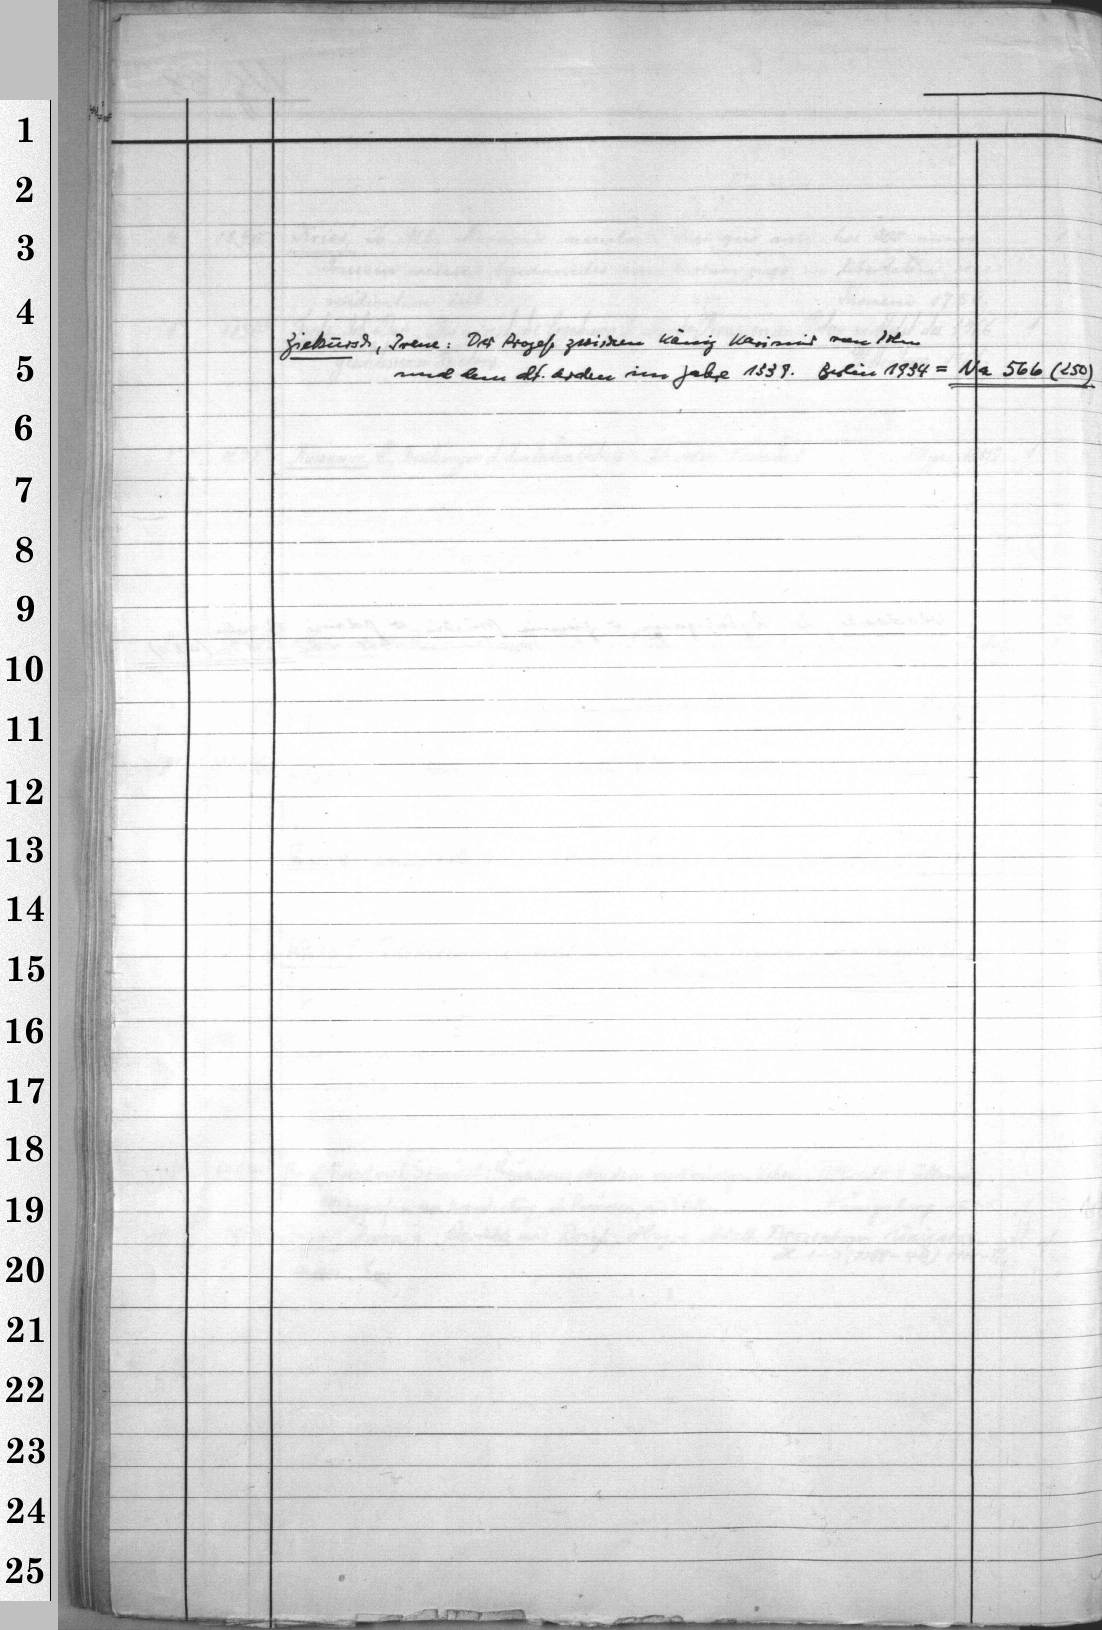 1
2
3
4
Ziekursch, Irene: Der Prozeß zwischen König Kasimir von Polen
5
und dem dt. Orden im Jahre 1339. Berlin 1934 = Na 566 (250)
6
7
8
9
10
11
12
13
14
15
16
17
18
19
20
21
22
23
24
25